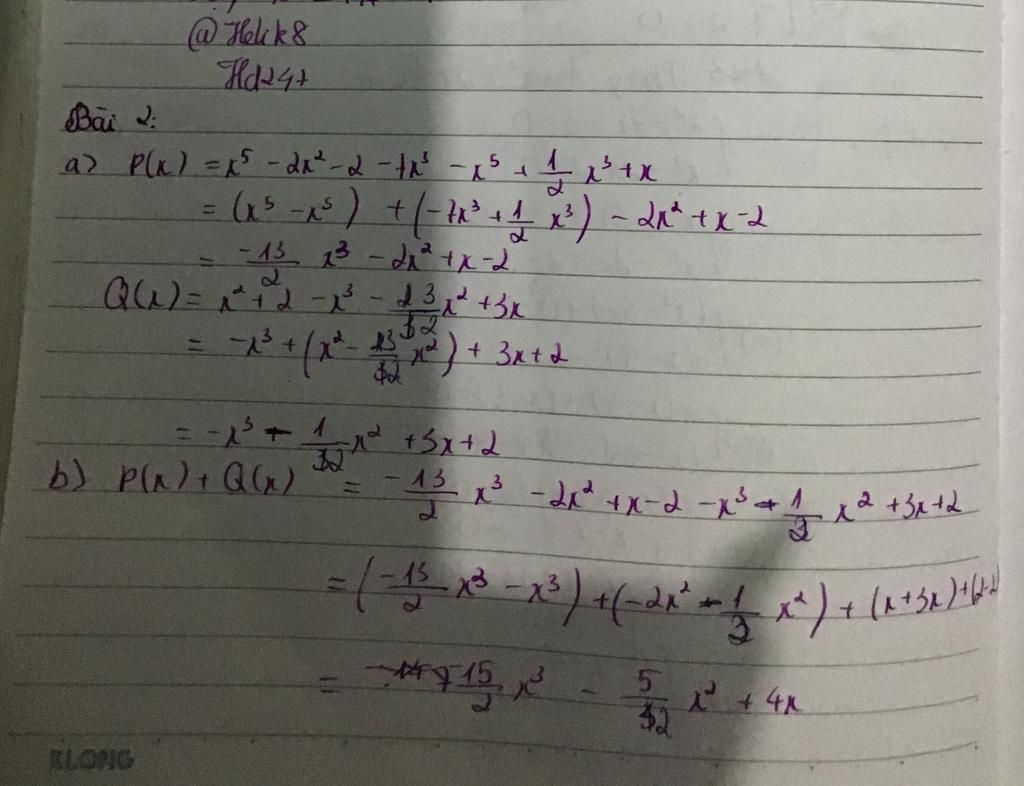 @Helk8
Hd247
Bài 2:
a) P(x) = x⁵ - 2x² - 2 - 7x³ - x⁵ + 1/2 x³ + x
= (x⁵ - x⁵) + (-7x³ + 1/2 x³) - 2x² + x - 2
= -13/2 x³ - 2x² + x - 2
Q(x) = x² + 2 - x³ - 3/2 x² + 3x
= -x³ + (x² - 3/2 x²) + 3x + 2
= -x³ - 1/2 x² + 3x + 2
b) P(x) + Q(x) = -13/2 x³ - 2x² + x - 2 - x³ - 1/2 x² + 3x + 2
= (-13/2 x³ - x³) + (-2x² - 1/2 x²) + (x + 3x) + (2-2)
= -15/2 x³ - 5/2 x² + 4x
KLONG